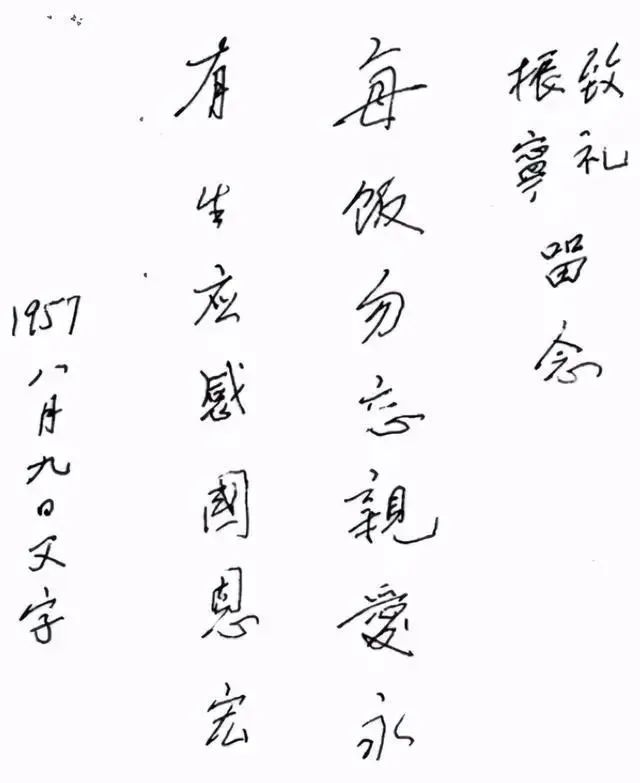 致礼
振寧 留念
每飯勿忘親愛永
有生應感國恩宏
1957八月九日父字